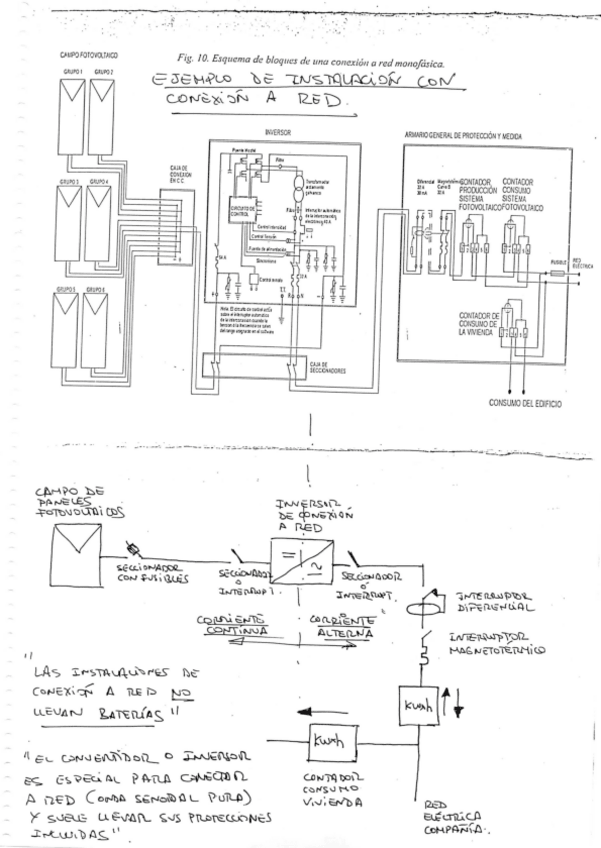 Fig. 10. Esquema de bloques de una conexión a red monofásica.
EJEMPLO DE INSTALACIÓN CON
CONEXIÓN A RED.
CAMPO FOTOVOLTAICO
GRUPO 1
GRUPO 2
GRUPO 3
GRUPO 4
GRUPO 5
GRUPO 6
CAJA DE
CONEXION
EN C.C.
INVERSOR
Puente
Filtro
Transformador
aislamiento
galvánico
CIRCUITO DE
CONTROL
Interruptor automático
de la interconexión
Control intensidad
Control Tensión
Fuente de alimentación
Sincronismo
Nota: El circuito de control actúa
sobre el interruptor automático
de la interconexión cuando la
tensión o la frecuencia se salen
del rango asignado en el software
CAJA DE
SECCIONADORES
ARMARIO GENERAL DE PROTECCIÓN Y MEDIDA
Diferencial
CONTADOR
PRODUCCIÓN
SISTEMA
FOTOVOLTAICO
CONTADOR
CONSUMO
SISTEMA
FOTOVOLTAICO
FUSIBLE
RED
ELÉCTRICA
CONTADOR DE
CONSUMO DE
LA VIVIENDA
CONSUMO DEL EDIFICIO
CAMPO DE
PANELES
FOTOVOLTAICOS
INVERSOR
DE CONEXIÓN
A RED
SECCIONADOR
CON FUSIBLES
SECCIONADOR
O
INTERRUPT.
SECCIONADOR
Ó
INTERRUPT.
CORRIENTE
CONTINUA
CORRIENTE
ALTERNA
INTERRUPTOR
DIFERENCIAL
INTERRUPTOR
MAGNETOTÉRMICO
"LAS INSTALACIONES DE
CONEXIÓN A RED NO
LLEVAN BATERÍAS"
Kwxh
Kwxh
CONTADOR
CONSUMO
VIVIENDA
RED
ELÉCTRICA
COMPAÑÍA.
"EL CONVERTIDOR O INVERSOR
ES ESPECIAL PARA CONECTAR
A RED (ONDA SENOIDAL PURA)
Y SUELE LLEVAR SUS PROTECCIONES
INCLUIDAS".